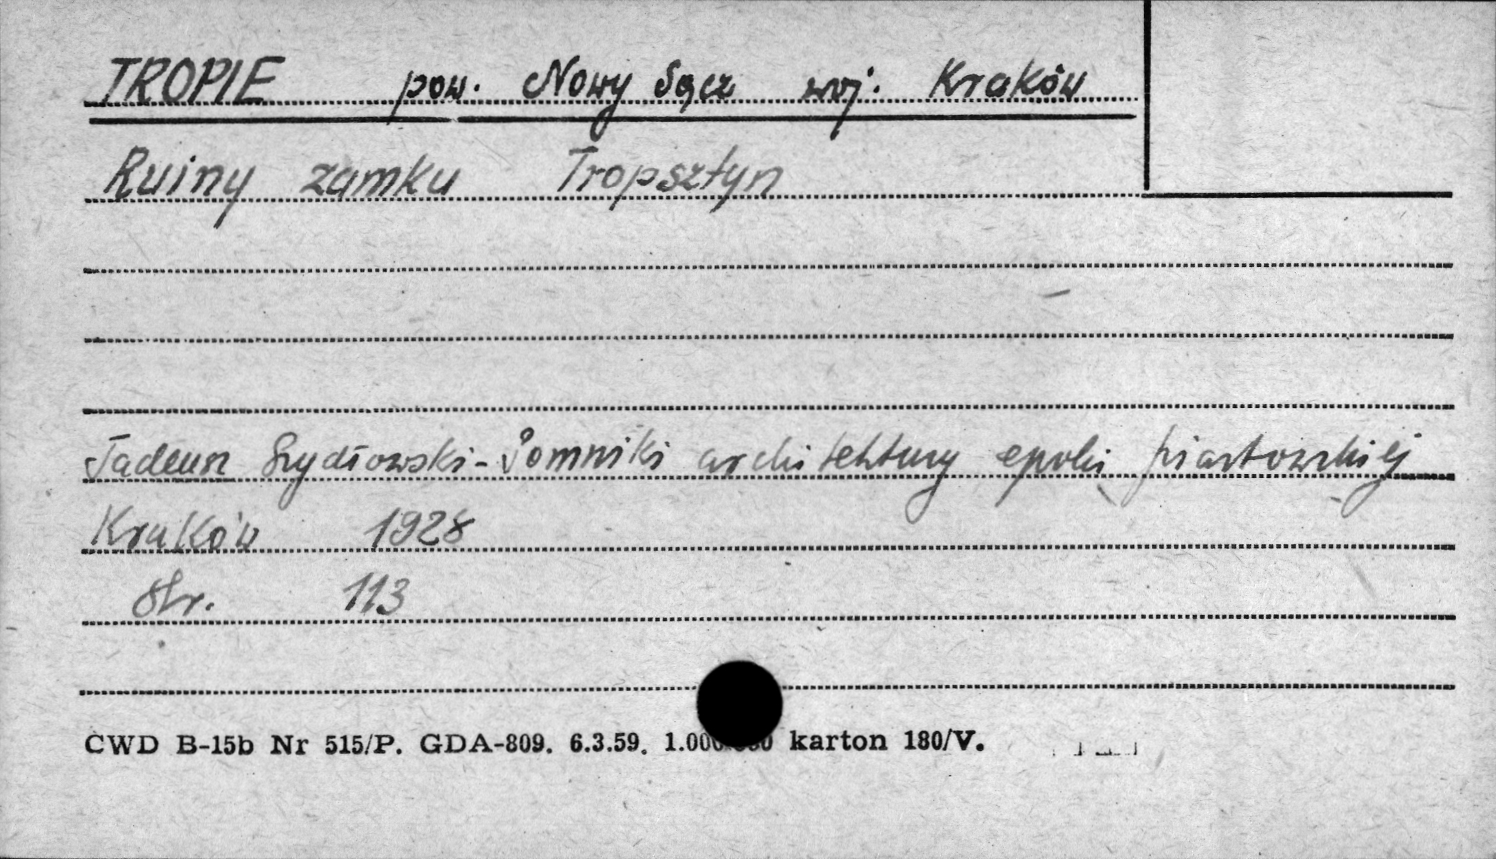 TROPIE pow. Nowy Sącz woj. Kraków
Ruiny zamku Tropsztyn
Tadeusz Szydłowski - Pomniki architektury epoki piastowskiej
Kraków 1928
str. 113
CWD B-15b Nr 515/P. GDA-809. 6.3.59. karton 180/V.